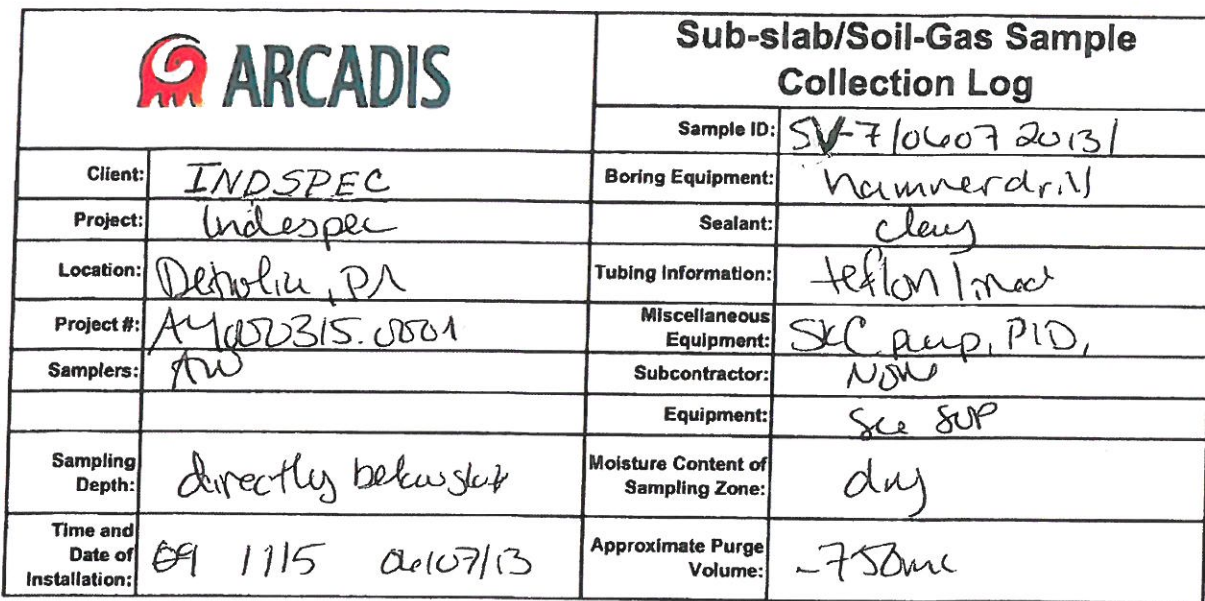 ARCADIS
Sub-slab/Soil-Gas Sample
Collection Log
Sample ID: SV-7/06072013/
Client: INDSPEC
Boring Equipment: hammerdrill
Project: Indespec
Sealant: clay
Location: Petrolia, PA
Tubing Information: teflon lined
Project #: AY000315.0001
Miscellaneous
Equipment: SKC pump, PID,
Samplers: AW
Subcontractor: None
Equipment: See SOP
Sampling
Depth: directly below slab
Moisture Content of
Sampling Zone: dry
Time and
Date of
Installation: 1115 06/07/13
Approximate Purge
Volume: ~750mL